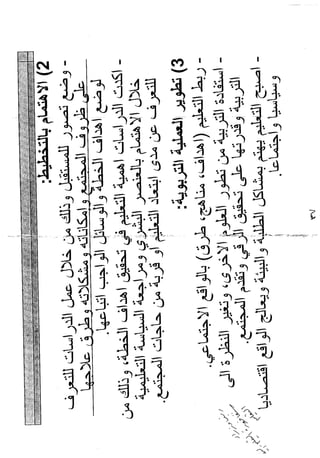 2) الاهتمام بالتخطيط:
- وضع تصور للمستقبل وذلك من خلال عمل الدراسات للتعرف
على ظروف المجتمع وامكاناته ومشكلاته وطرق علاجها
لوضع اهداف الخطة والوسائل الواجب اتباعها.
- اكدت الدراسات اهمية التعليم في تحقيق اهداف الخطة، وذلك من
خلال الاهتمام بالعنصر البشري ومراجعة السياسة التعليمية
للتعرف عن مدى ابتعاد التعليم او قربه من حاجات المجتمع.
3) تطوير العملية التربوية:
- ربط التعليم (اهداف، مناهج، طرق) بالواقع الاجتماعي.
- استفادة التربية من تطور العلوم الاخرى، وتغير النظرة الى
التربية وقدرتها على تحقيق الرقي وتقدم المجتمع.
- اصبح التعليم يهتم بمشاكل الطلبة والبيئة ويعالج الواقع اقتصاديا
وسياسيا واجتماعيا.
٣٧